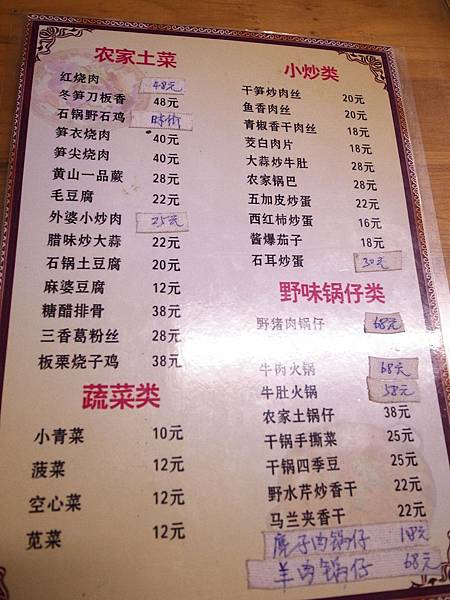 农家土菜
红烧肉 48元
冬笋刀板香 48元
石锅野石鸡 时价
笋衣烧肉 40元
笋尖烧肉 40元
黄山一品蕨 28元
毛豆腐 22元
外婆小炒肉 25元
腊味炒大蒜 22元
石锅土豆腐 20元
麻婆豆腐 12元
糖醋排骨 38元
三香葛粉丝 28元
板栗烧子鸡 38元
蔬菜类
小青菜 10元
菠菜 12元
空心菜 12元
苋菜 12元
小炒类
干笋炒肉丝 20元
鱼香肉丝 20元
青椒香干肉丝 18元
茭白肉片 18元
大蒜炒牛肚 28元
农家锅巴 28元
五加皮炒蛋 22元
西红柿炒蛋 16元
酱爆茄子 18元
石耳炒蛋 30元
野味锅仔类
野猪肉锅仔 68元
牛肉火锅 68元
牛肚火锅 58元
农家土锅仔 38元
干锅手撕菜 25元
干锅四季豆 25元
野水芹炒香干 22元
马兰夹香干 22元
麂子肉锅仔
羊肉锅仔 68元